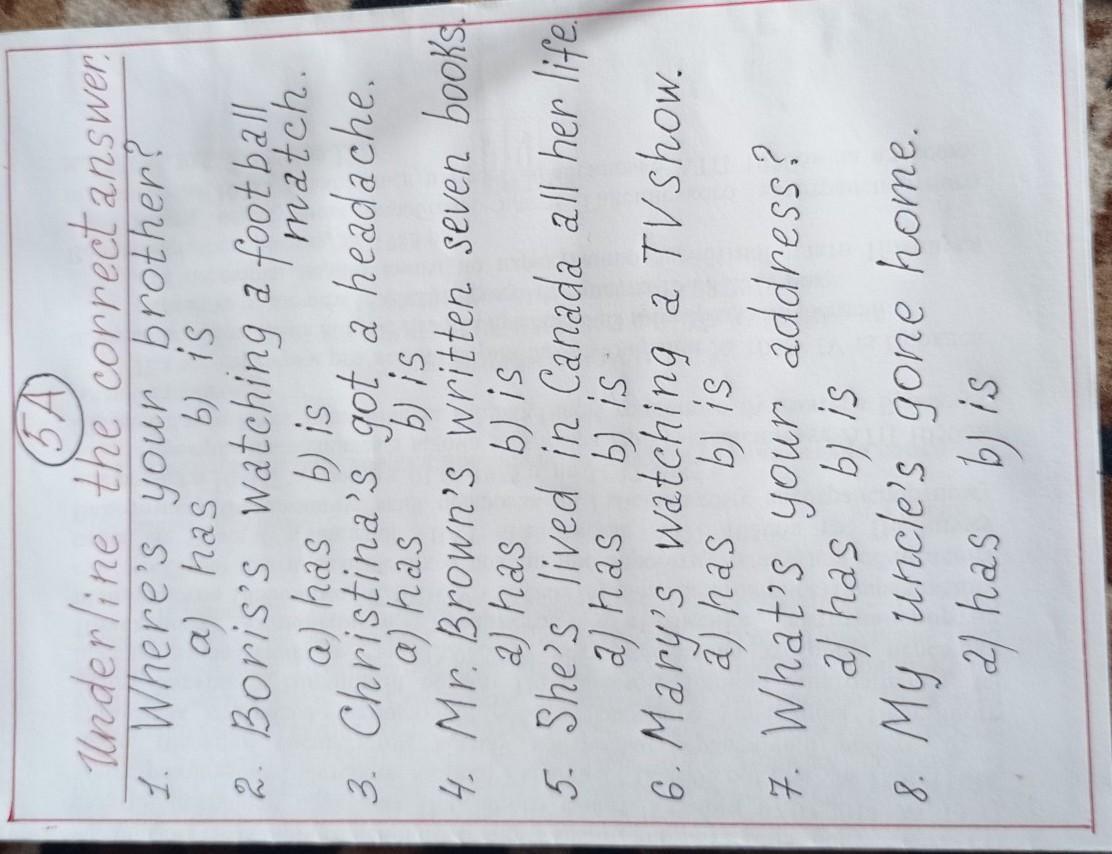 5A
Underline the correct answer.
1. Where's your brother?
a) has b) is
2. Boris's watching a football
match.
a) has b) is
3. Christina's got a headache.
a) has b) is
4. Mr. Brown's written seven books.
a) has b) is
5. She's lived in Canada all her life.
a) has b) is
6. Mary's watching a TV show.
a) has b) is
7. What's your address?
a) has b) is
8. My uncle's gone home.
a) has b) is